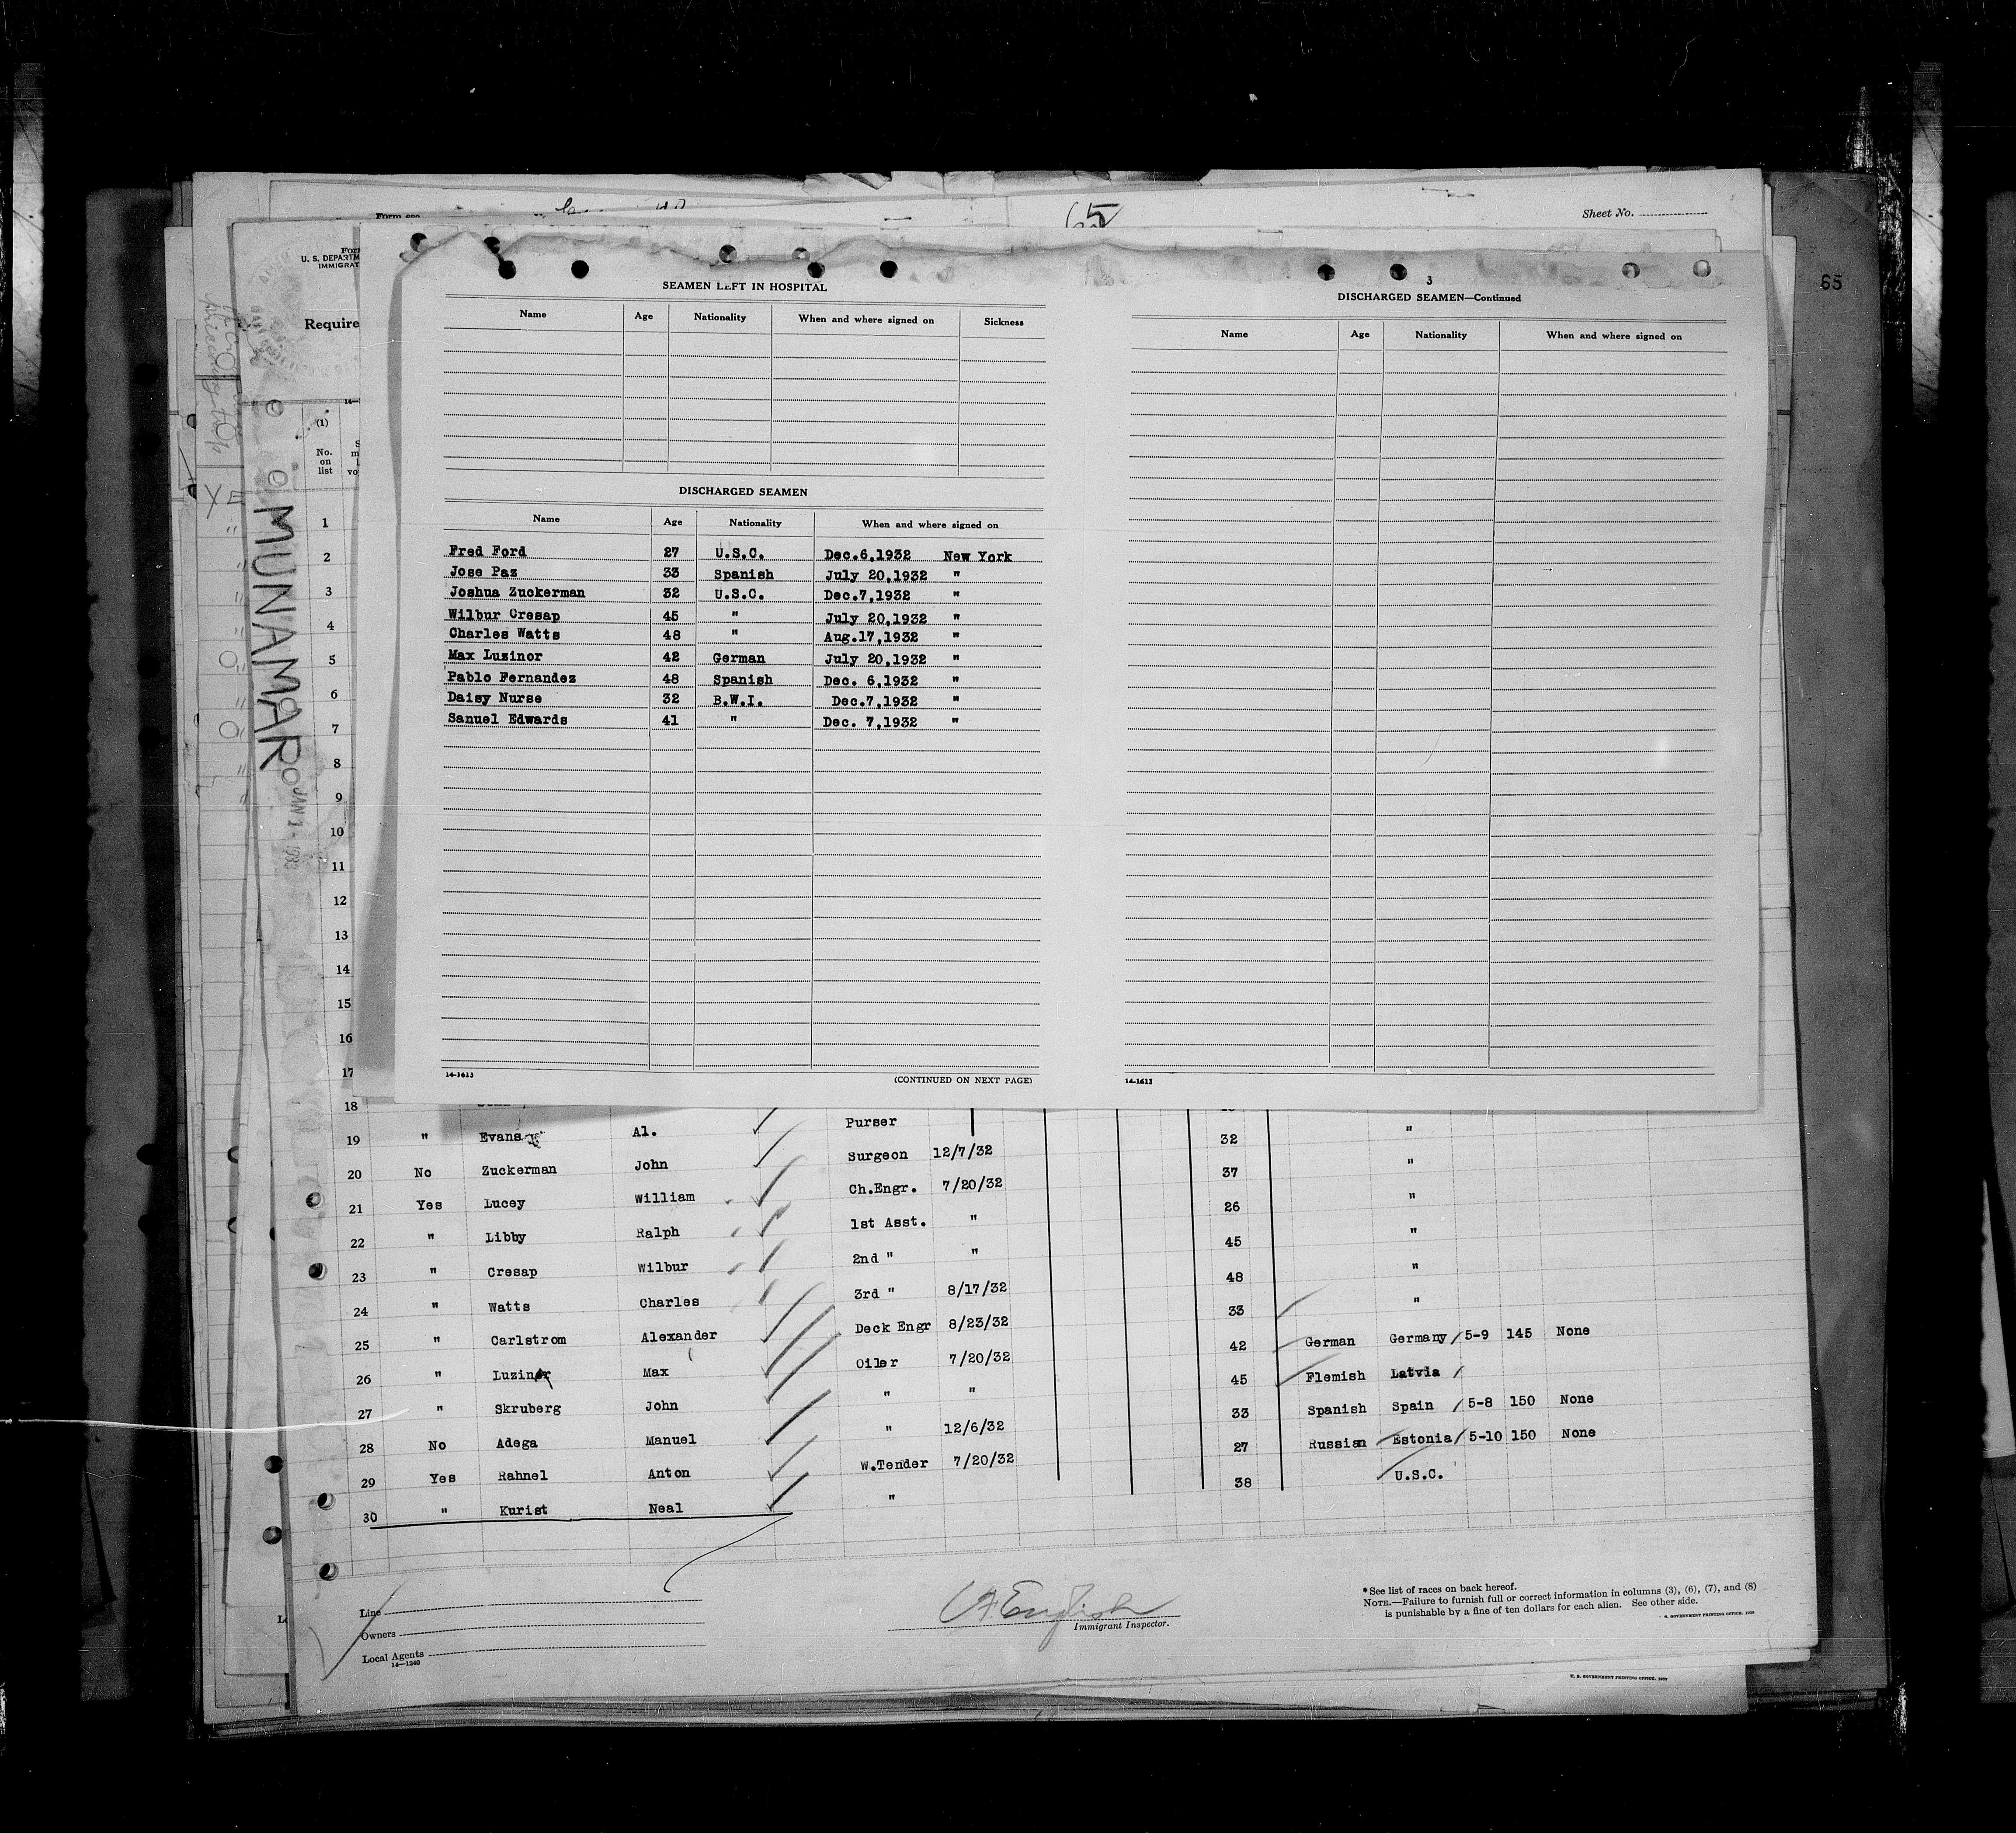 65
Sheet No.
65
U. S. DEPARTM
IMMIGRAT
Require
(1)
No.
on
list
MUNAMAR
JAN 1 -
3
SEAMEN LEFT IN HOSPITAL
Name Age Nationality When and where signed on Sickness
DISCHARGED SEAMEN
Name Age Nationality When and where signed on
Fred Ford 27 U.S.C. Dec.6,1932 New York
Jose Paz 33 Spanish July 20,1932 "
Joshua Zuckerman 32 U.S.C. Dec.7,1932 "
Wilbur Cresap 45 " July 20,1932 "
Charles Watts 48 " Aug.17,1932 "
Max Luzinor 42 German July 20,1932 "
Pablo Fernandez 48 Spanish Dec. 6,1932 "
Daisy Nurse 32 B.W.I. Dec.7,1932 "
Sanuel Edwards 41 " Dec. 7,1932 "
14-1613
(CONTINUED ON NEXT PAGE)
DISCHARGED SEAMEN—Continued
Name Age Nationality When and where signed on
14-1613
1
2
3
4
5
6
7
8
9
10
11
12
13
14
15
16
17
18
19 " Evans Al. Purser 32 "
20 No Zuckerman John Surgeon 12/7/32 37 "
21 Yes Lucey William Ch.Engr. 7/20/32 26 "
22 " Libby Ralph 1st Asst. " 45 "
23 " Cresap Wilbur 2nd " " 48 "
24 " Watts Charles 3rd " 8/17/32 33 "
25 " Carlstrom Alexander Deck Engr 8/23/32 42 German Germany 5-9 145 None
26 " Luzinor Max Oiler 7/20/32 45 Flemish Latvia
27 " Skruberg John " " 33 Spanish Spain 5-8 150 None
28 No Adega Manuel " 12/6/32 27 Russian Estonia 5-10 150 None
29 Yes Rahnel Anton W.Tender 7/20/32 38 U.S.C.
30 " Kurist Neal "
Line
Owners
Local Agents
14-1240
English
Immigrant Inspector.
*See list of races on back hereof.
NOTE.—Failure to furnish full or correct information in columns (3), (6), (7), and (8)
is punishable by a fine of ten dollars for each alien. See other side.
U. S. GOVERNMENT PRINTING OFFICE